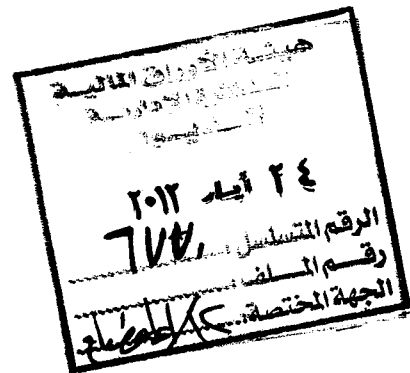 هيئة الأوراق المالية
الدائرة الادارية
الديوان
٢٤ أيار ٢٠١٢
الرقم المتسلسل
رقم الملف
الجهة المختصة